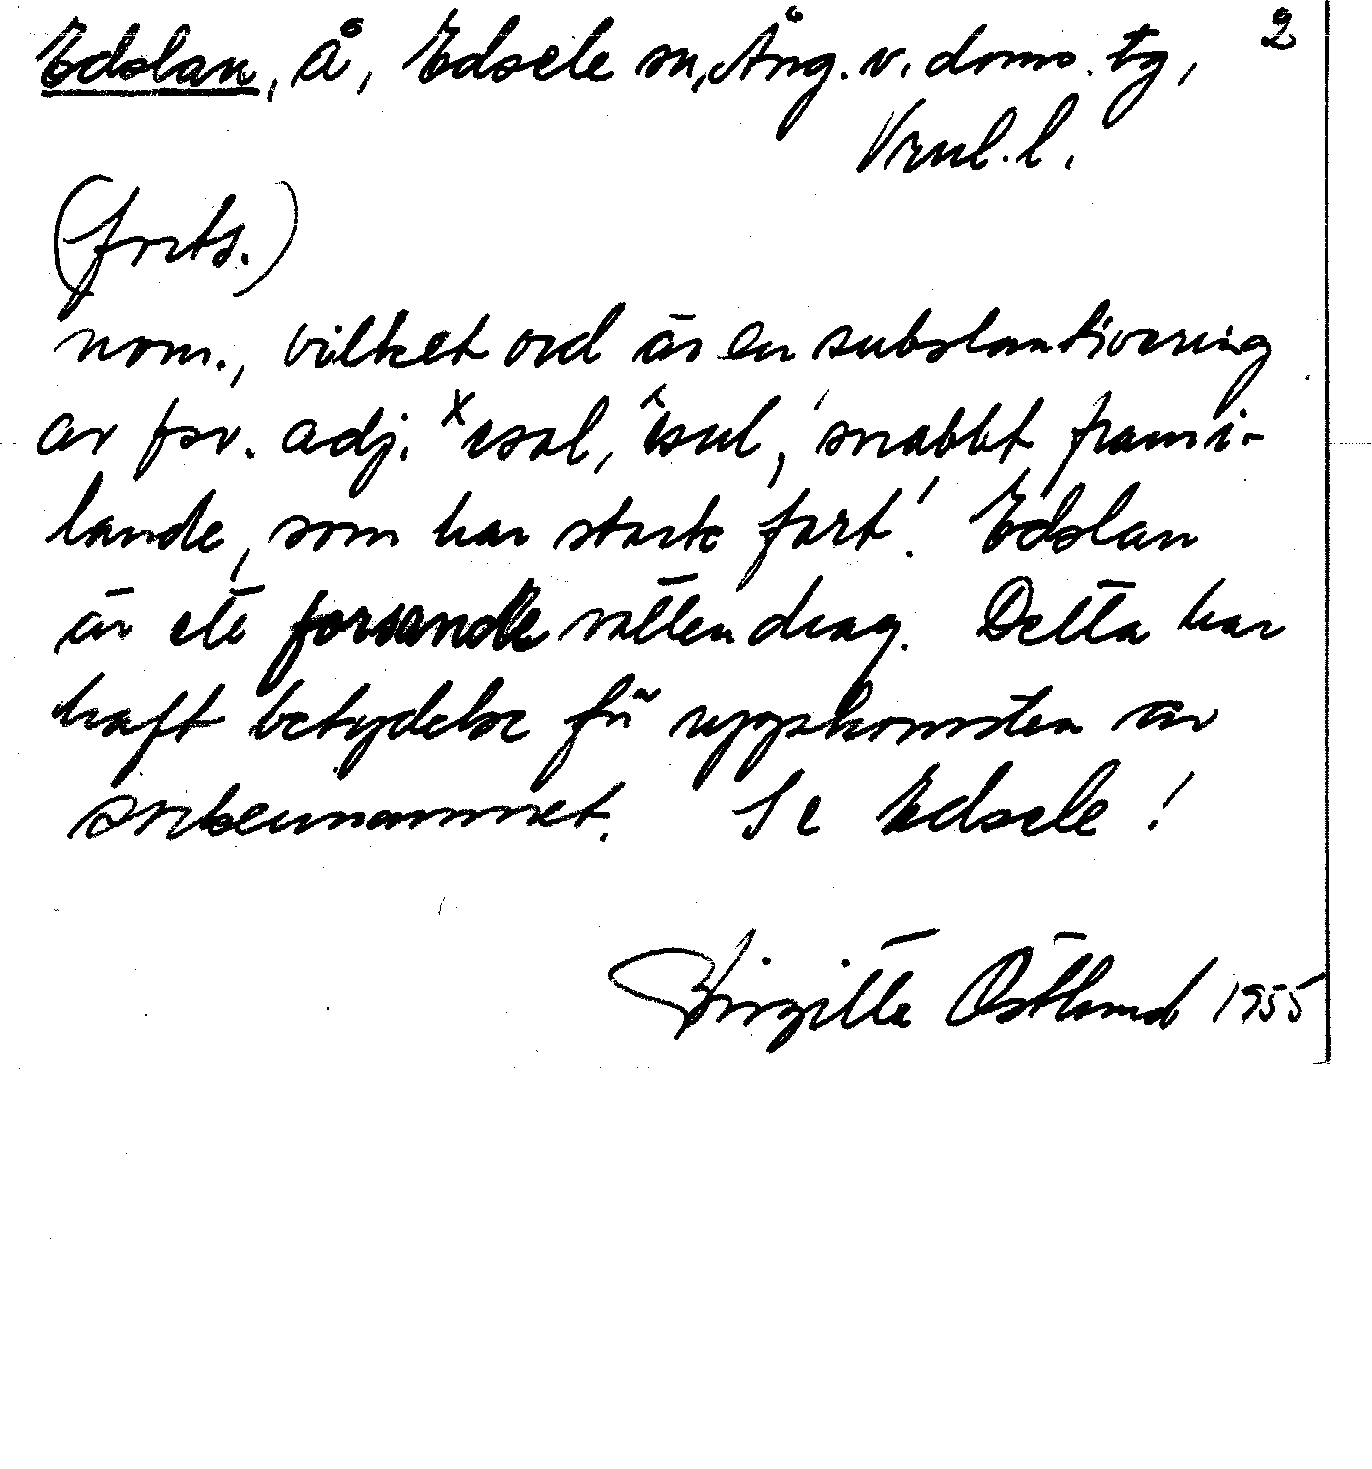 Edslan, å, Edsele sn, Ång. v. doms. tg, 2
Vrml. l.
(forts.)
nom., vilket ord är en substantivering
av fsv. adj. ˣisal, îsul, 'snabbt frami-
lande, som har stark fart'. Edslan
är ett forsande vattendrag. Detta har
haft betydelse för uppkomsten av
ortbenamnet. Se Edsele!
Birgitta Östlund 1955